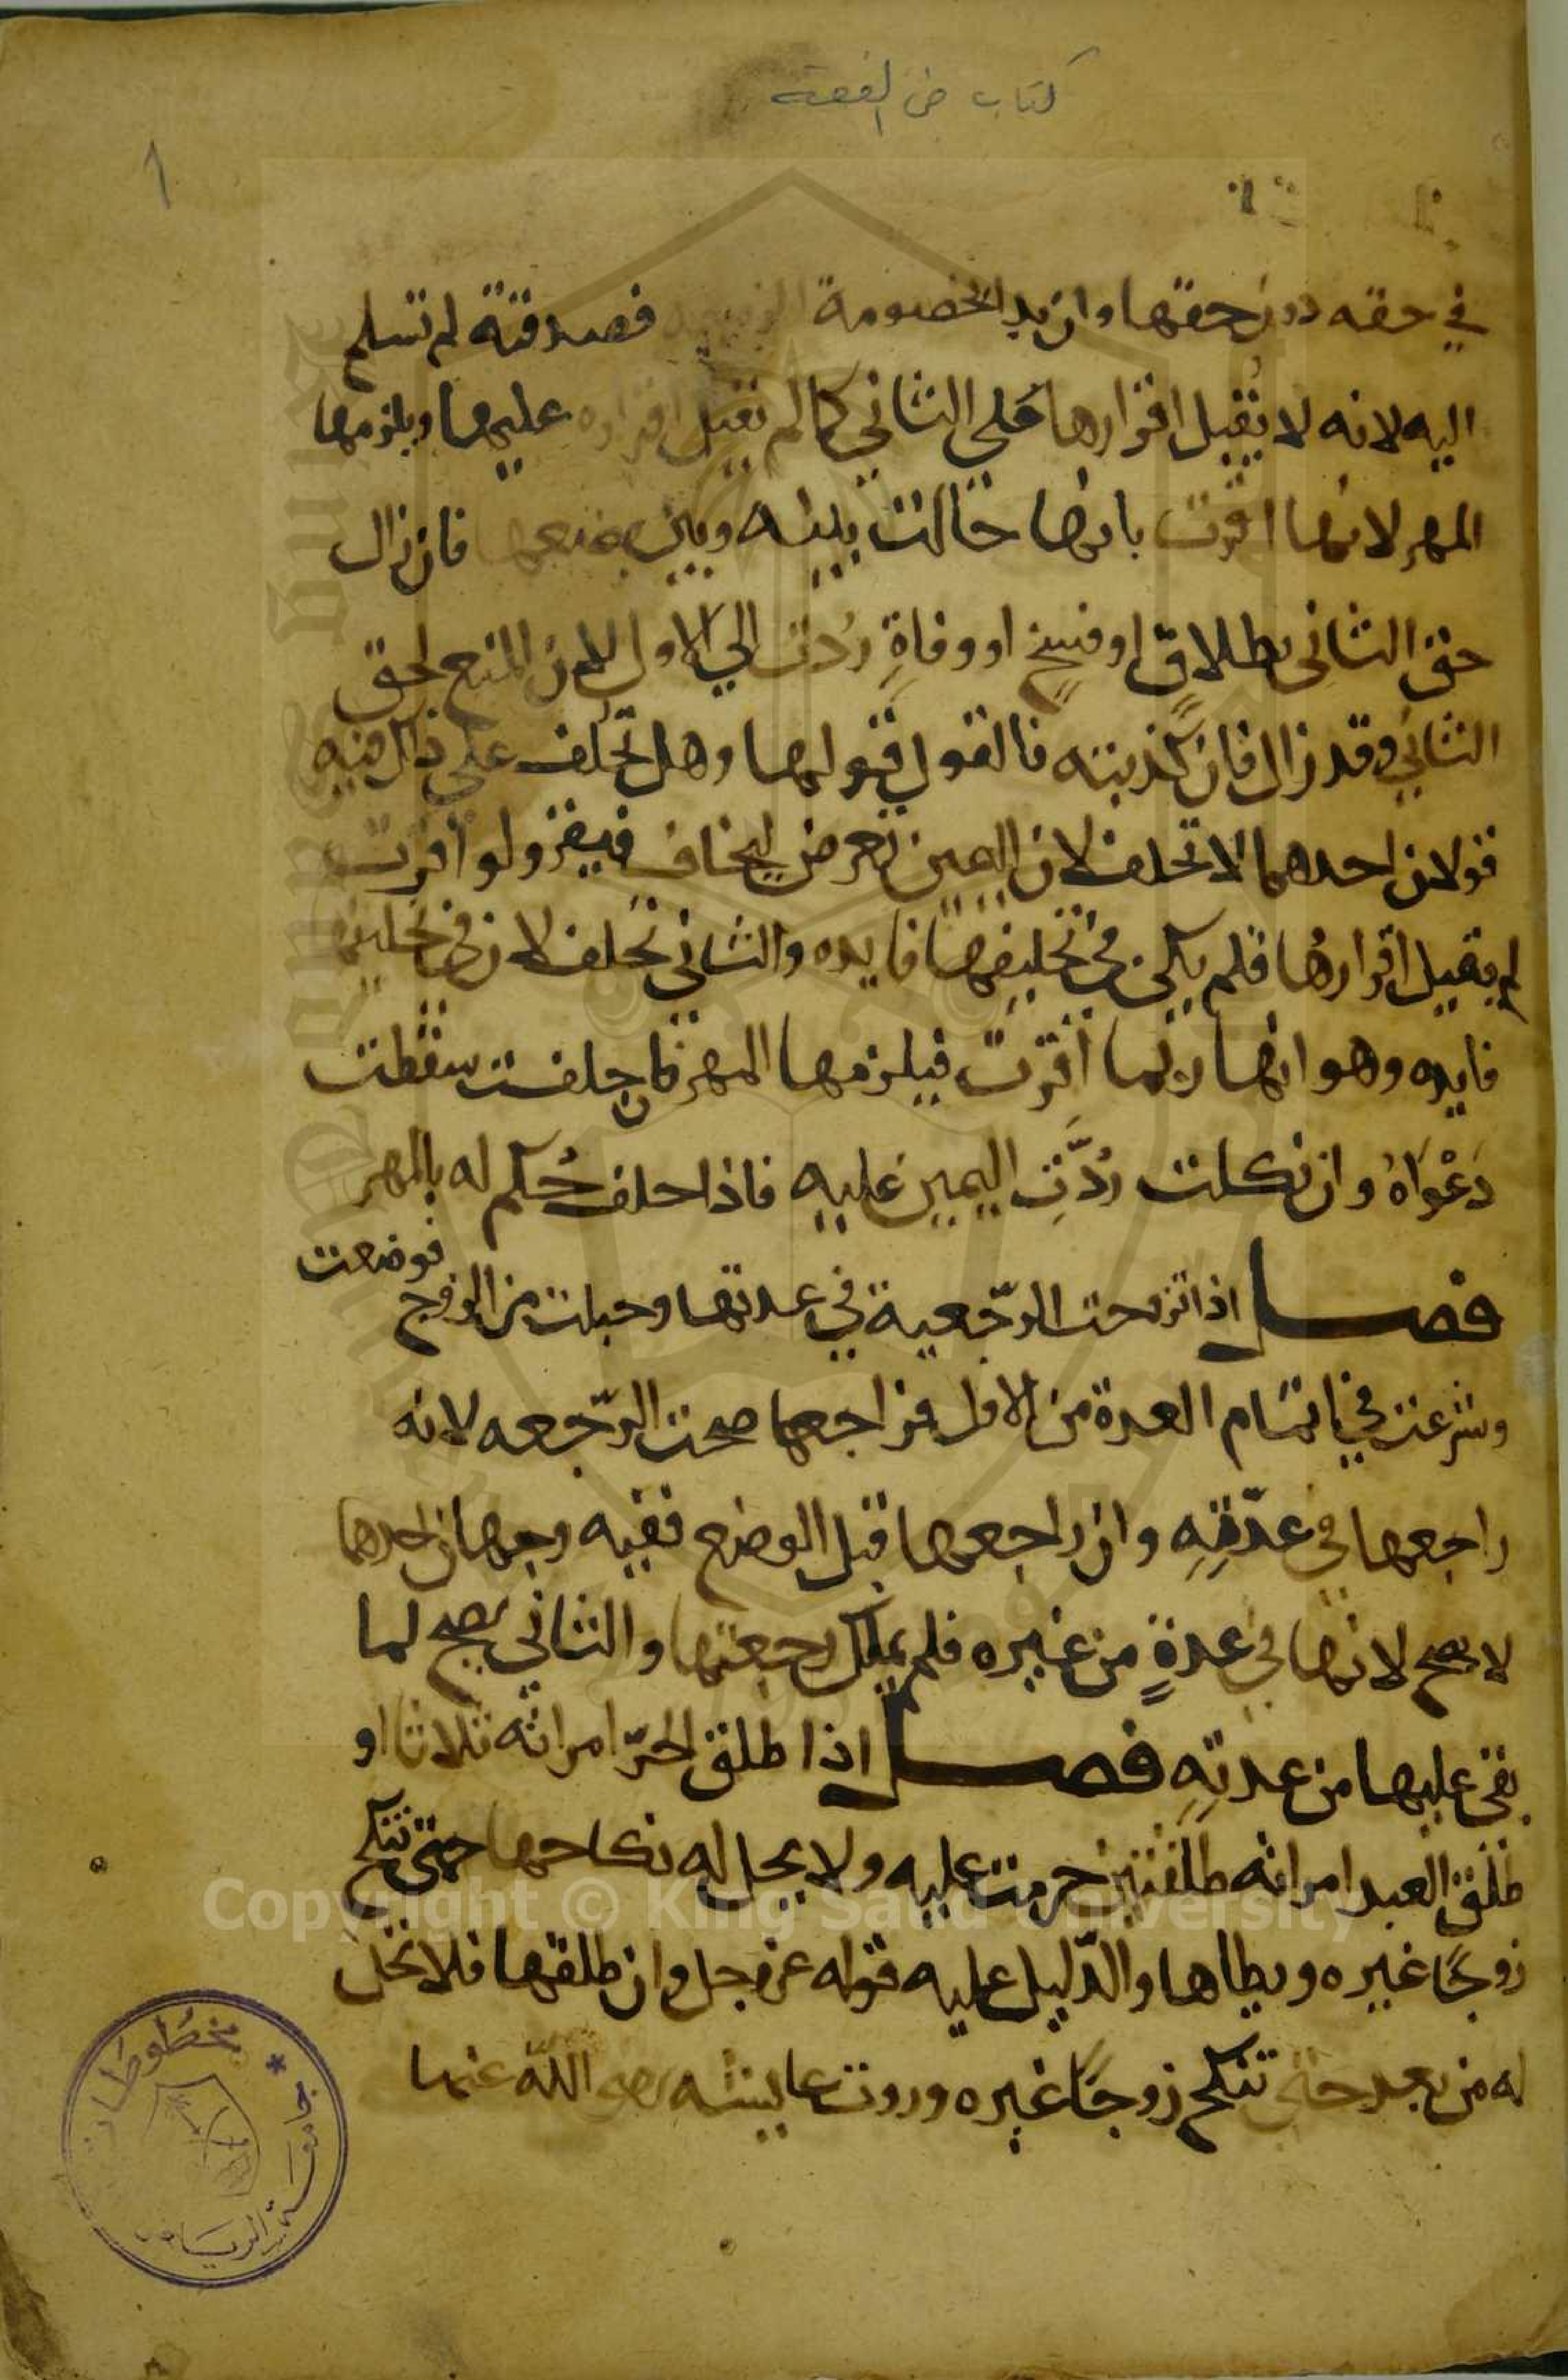 كتاب في الفقه
١
في حقه دون حقها وان بدا الخصومة الزوجة فصدقته لم تسلم
اليه لانه لا يقبل اقرارها على الثاني كما لم يقبل اقراره عليها ويلزمها
المهر لانها اقرت بانها حالت بينه وبين بضعها فان زال
حق الثاني بطلاق او فسخ او وفاة ردت الي الاول لان المنع لحق
الثاني وقد زال فان كذبته فالقول قولها وهل تحلف على ذلك فيه
قولان احدهما لا تحلف لان اليمين تعرض ليخاف فيقر ولو اقرت
لم يقبل اقرارها فلم يكن في تحليفها فايده والثاني تحلف لان في تحليفها
فايده وهو انها ربما اقرت فيلزمها المهر فان حلفت سقطت
دعواه وان نكلت ردت اليمين عليه فاذا حلف حكم له بالمهر
فصل اذا تزوجت الرجعية في عدتها وحبلت من الزوج فوضعت
وشرعت في اتمام العدة من الاول فراجعها صحت الرجعه لانه
راجعها في عدته وان راجعها قبل الوضع ففيه وجهان احدهما
لا يصح لانها في عدة من غيره فلم يملك رجعتها والثاني يصح لما
بقى عليها من عدته فصل اذا طلق الحر امراته ثلاثا او
طلق العبد امراته طلقتين حرمت عليه ولا يحل له نكاحها حتى تنكح
زوجا غيره ويطاها والدليل عليه قوله عز وجل وان طلقها فلا تحل
له من بعد حتى تنكح زوجا غيره وروت عايشه رضي الله عنها
Copyright © King Saud University
مخطوطات
جامعة الرياض